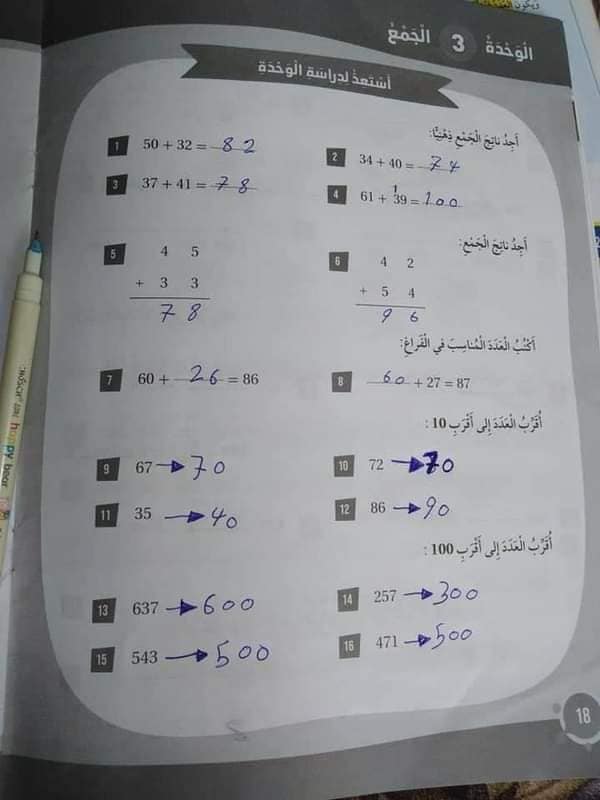 ويكون
الْوَحْدَةُ 3 الْجَمْعُ
أَسْتَعِدُّ لِدِراسَةِ الْوَحْدَةِ
أَجِدُ ناتِجَ الْجَمْعِ ذِهْنِيًّا:
1 50 + 32 = 82
2 34 + 40 = 74
3 37 + 41 = 78
4 61 + 39 = 100
1
أَجِدُ ناتِجَ الْجَمْعِ:
5 4 5
+ 3 3
7 8
6 4 2
+ 5 4
9 6
أَكْتُبُ الْعَدَدَ الْمُناسِبَ في الْفَراغِ:
7 60 + 26 = 86
8 60 + 27 = 87
أُقَرِّبُ الْعَدَدَ إِلى أَقْرَبِ 10 :
9 67 → 70
10 72 → 70
11 35 → 40
12 86 → 90
أُقَرِّبُ الْعَدَدَ إِلى أَقْرَبِ 100 :
13 637 → 600
14 257 → 300
15 543 → 500
16 471 → 500
18
happy bear